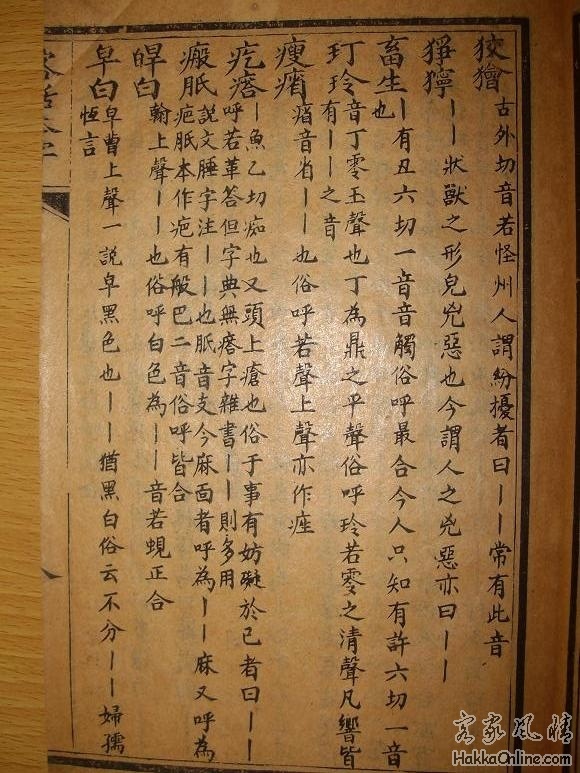 狡獪 古外切音若怪州人謂紛擾者曰丨丨常有此音
猙獰 丨丨狀獸之形皃兇惡也今謂人之兇惡亦曰丨丨
畜生 丨有丑六切一音音觸俗呼最合今人只知有許六切一音
也
玎玲 音丁零玉聲也丁為鼎之平聲俗呼玲若零之清聲凡響皆
有丨丨之音
瘦㾪 㾪音省丨丨也俗呼若聲上聲亦作㾪
疙瘩 丨魚乙切痴也又頭上瘡也俗于事有妨礙於己者曰丨丨
呼若革答但字典無瘩字雜書丨丨則多用
瘢胝 說文腄字注丨丨也胝音支今麻面者呼為丨丨麻又呼為
疤胝本作疤有般巴二音俗呼皆合
皔白 翰上聲丨丨也俗呼白色為丨丨音若蜆正合
皁白 皁曹上聲一說皁黑色也丨丨猶黑白俗云不分丨丨婦孺
恆言
客家風情
HakkaOnline.com